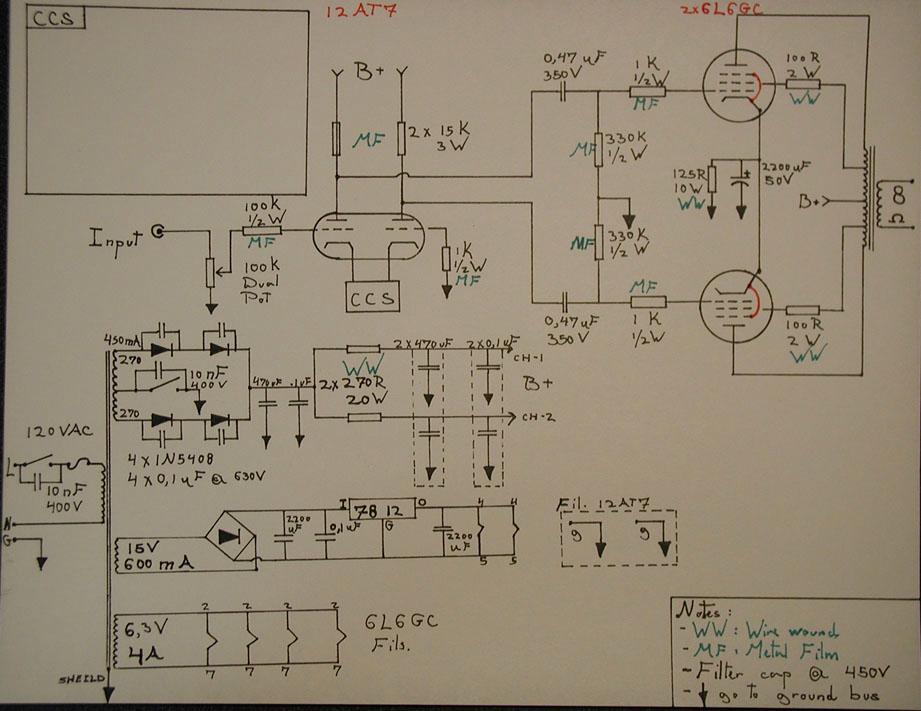 CCS
12AT7
2x6L6GC
B+
0,47uF
350V
1K
1/2W
MF
100R
2 W
WW
MF
2 x 15K
3W
MF
330K
1/2 W
125R
10W
WW
2200uF
50V
B+
8Ω
Input
100K
1/2 W
MF
100K
Dual
Pot
1K
1/2W
MF
CCS
MF
330K
1/2 W
MF
0,47uF
350V
1K
1/2W
100R
2 W
WW
450mA
270
10nF
400V
270
470uF
.1uF
WW
2x270R
20W
2x470uF
2x0,1uF
CH-1
B+
CH-2
120VAC
L
10nF
400V
N
G
4x1N5408
4x0,1uF @ 630V
15V
600mA
2200
uF
0,1uF
I
7812
O
G
2200
uF
4
4
5
5
Fil. 12AT7
9
9
6,3V
4A
2
2
2
2
7
7
7
7
6L6GC
Fils.
SHEILD
Notes:
- WW: Wire wound
- MF: Metal Film
- Filter cap @ 450V
- go to ground bus